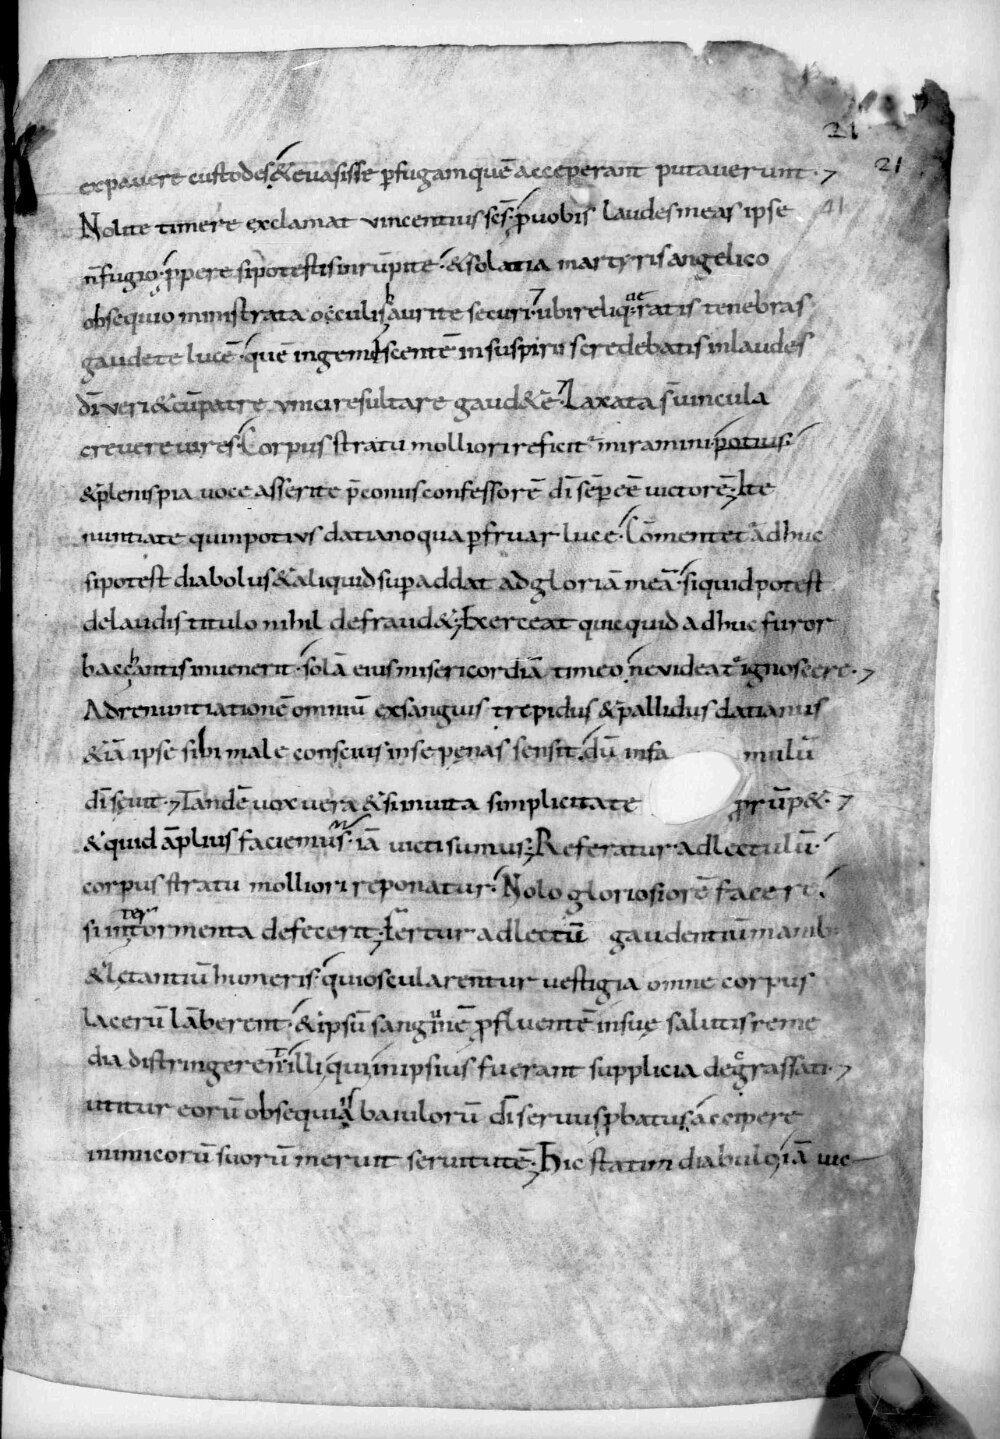 21
21
41
expavere custodes · & evasisse p̱fugam quē acceperant putaverunt ·
Nolite timere exclamat vincentius scs̄ · p̱ vobis laudes meas ipse
n̄ fugio · p̱pere si potestis inrūpite · & solatia martyris angelico
obsequio ministrata occulis haurite securi · ubi reliqueratis tenebras
gaudete lucē · quē ingemiscentē in suspiriis credebatis in laudes
dī veri & cū patre unici resultare gaud&ę · Laxata s̄ vincula
crevere vires · Corpus stratu molliori reficit · miramini potius ·
& plenis pia voce asserite p̄coniis confessorē dī sēp̱ eē victorē · Ite
nuntiate quin potius datiano qua p̱fruar luce · Cōmentet adhuc
si potest diabolus & aliquid sup̱addat ad gloriā meā · si quid potest
de laudis titulo nihil defraud& · Exerceat quicquid adhuc furor
bacchantis invenerit · solā eius misericordiā timeo ne videat ignoscere ·
Ad renuntiationē omniū exsanguis trepidus & pallidus datianus
& iā ipse sibi male conscius in se pęnas sensit · dū in fa mulū
dī sęvit · Tandē vox vera & si invita simplicitate prorūp& ·
& quid āplius faciemus · iā victi sumus · Referatur ad lectulū ·
corpus stratu molliori reponatur · Nolo gloriosiorē facere ·
si inter tormenta defecerit · Fertur ad lectū gaudentiū manib
& lętantiū humeris · qui oscularentur vestigia omne corpus
lacerū lāberent · & ipsū sanguinē p̱fluentē in suę salutis reme
dia distringerent · illi qui in ipsius fuerant supplicia degrassati ·
utitur eorū obsequiis baiulorū dī servus p̱batus · accipere
inimicorū suorū meruit servitutē · Hic statim diabulq; iā vic